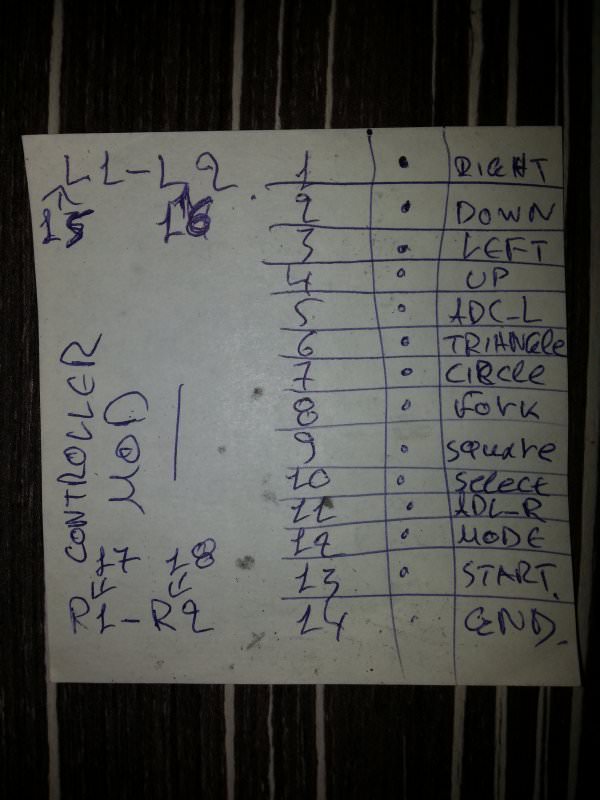 L1-L2
15 16
CONTROLLER
MOD
17 18
R1-R2
1 RIGHT
2 DOWN
3 LEFT
4 UP
5 ADC-L
6 TRIANGLe
7 CIRCLe
8 Fork
9 square
10 Select
11 ADC-R
12 MODE
13 START.
14 GND.